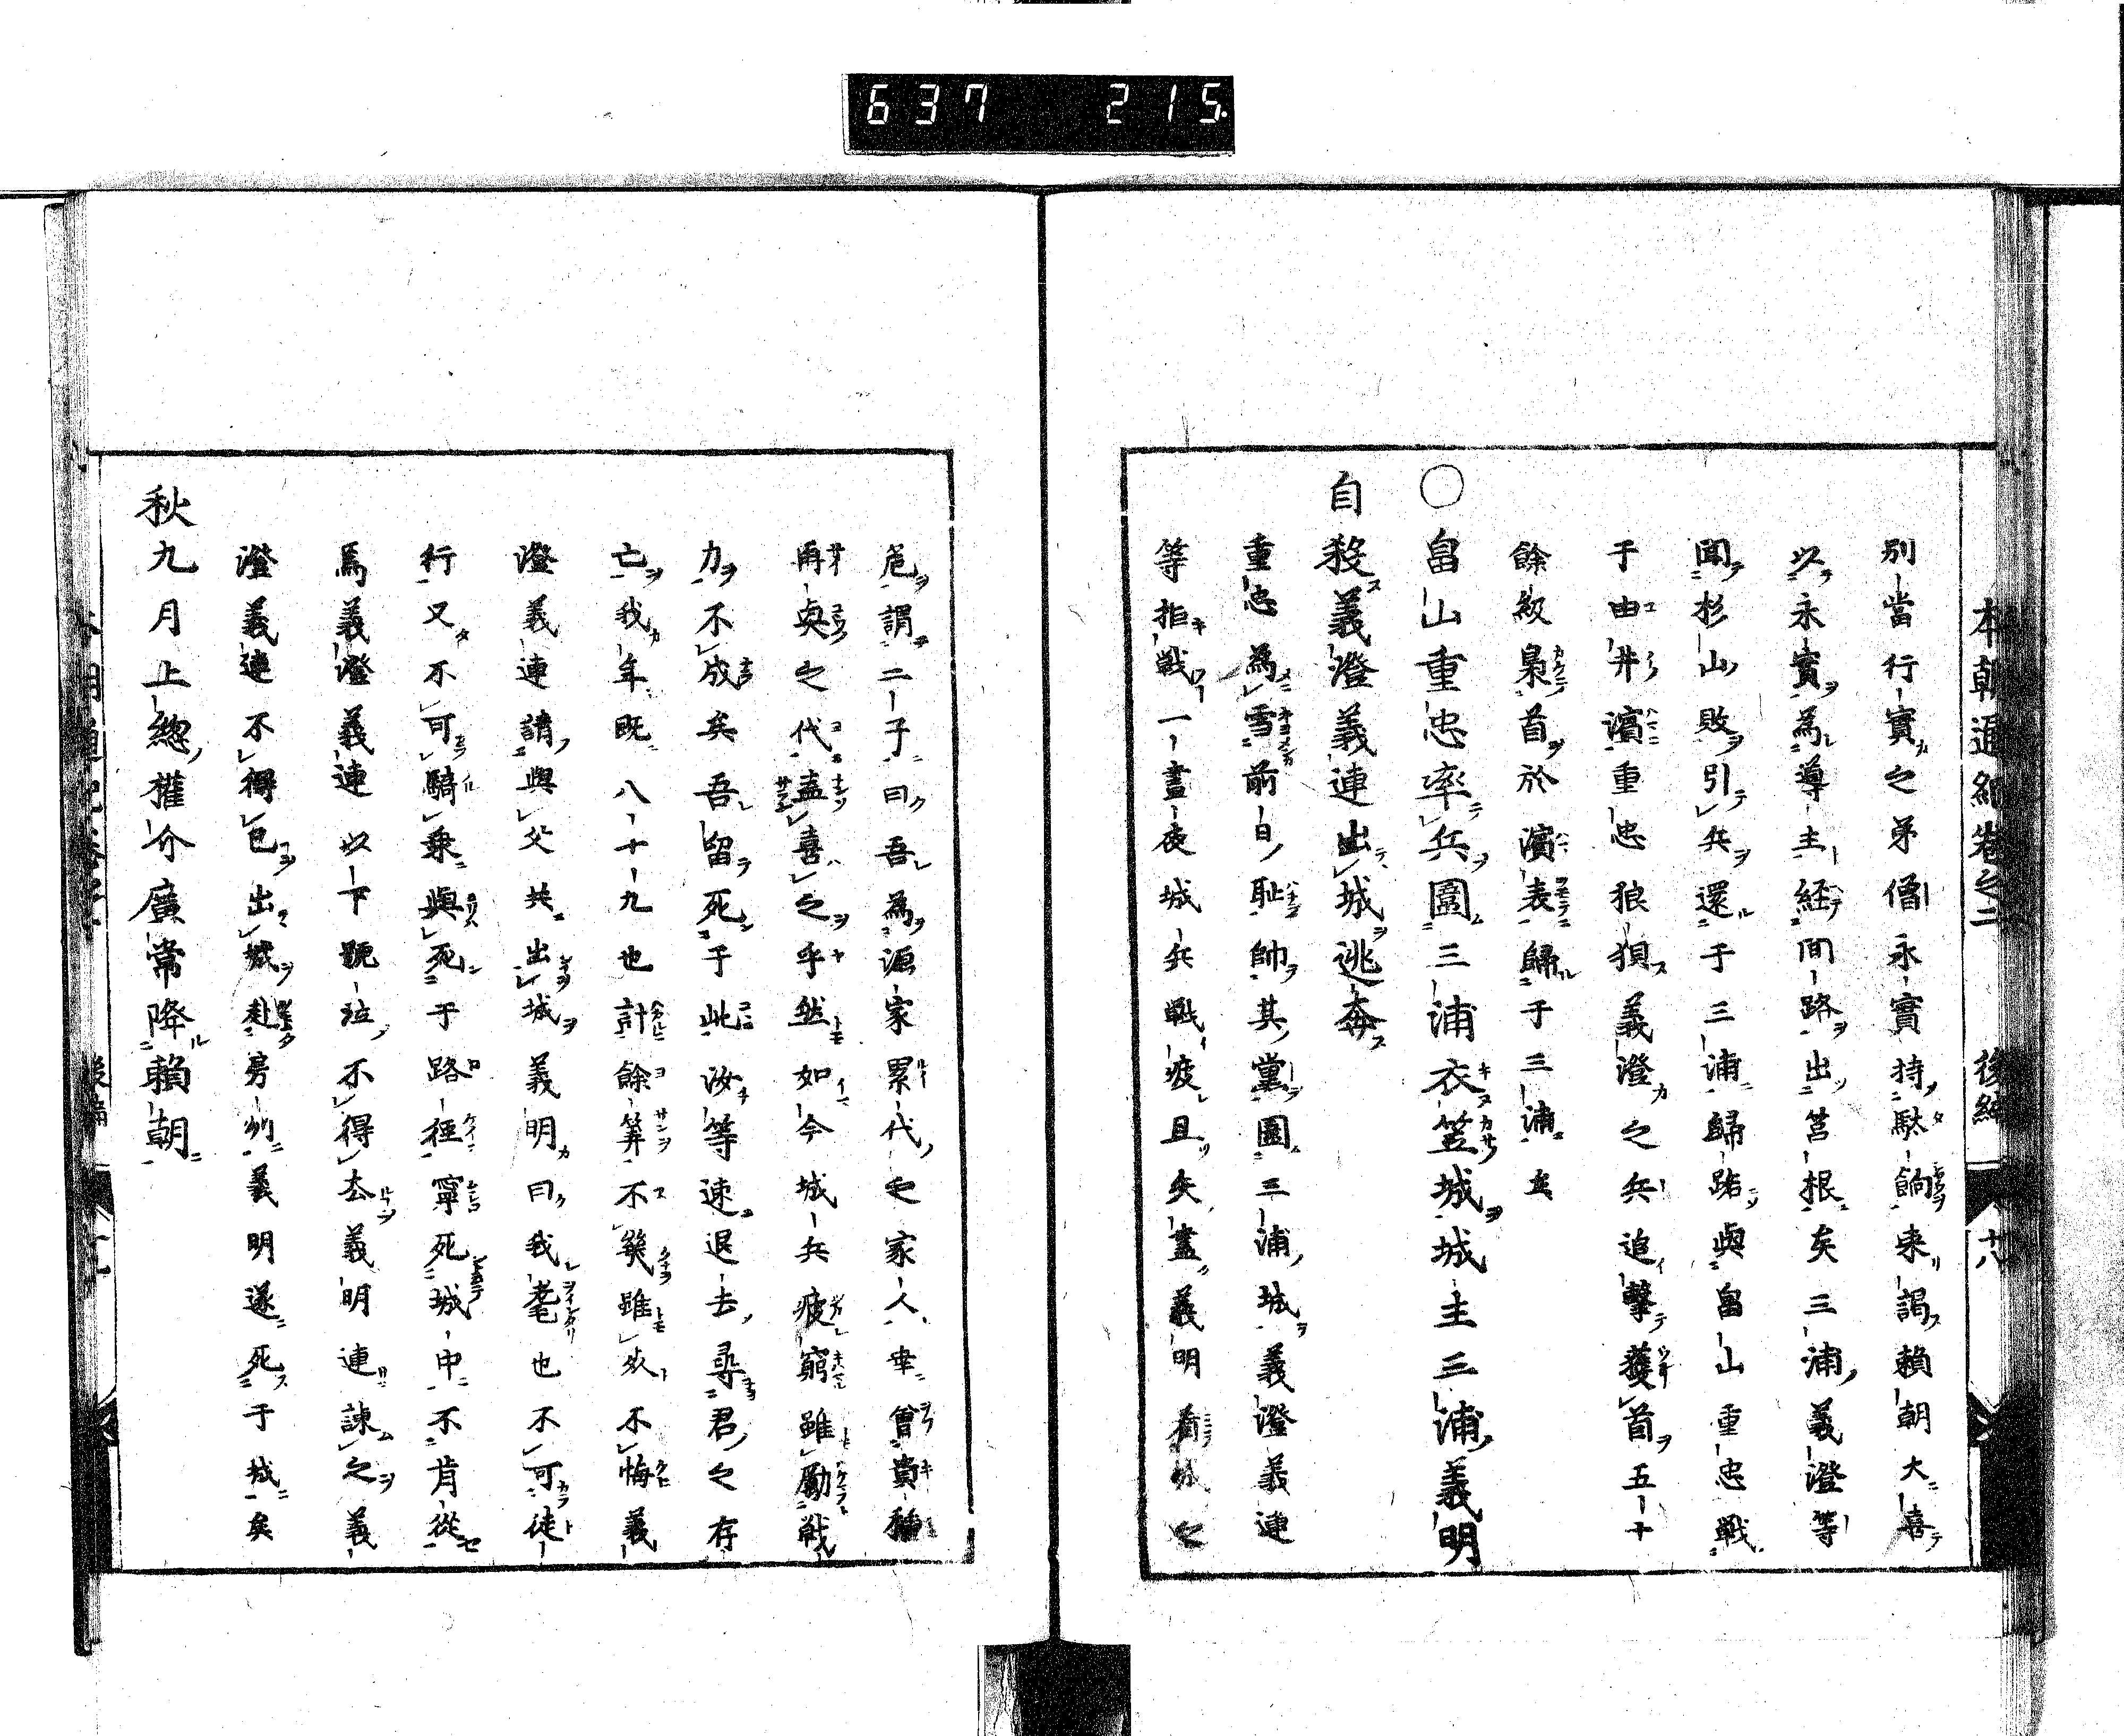 637 215.
本朝通紀卷之二 後編 十八
別當行實之弟僧永實持駄餉来謁賴朝大喜
以永實為導主経間路出筥根矣三浦義澄等
聞杉山敗引兵還于三浦歸路與畠山重忠戦
于由井濵重忠狼狽義澄之兵追擊獲首五十
餘級梟首於濵表歸于三浦矣
○畠山重忠率兵圍三浦衣笠城城主三浦義明
自殺義澄義連出城逃奔
重忠為雪前日恥帥其黨圍三浦城義澄義連
等拒戦一晝夜城兵戦疲且矢盡義明看城之
危謂二子曰吾為源家累代之家人幸曽貴種
再興之代盍喜之乎然如今城兵疲窮雖勵戦
力不成矣吾留死于此汝等速退去尋君之存
亡我年既八十九也計餘筭不幾雖死不悔義
澄義連請與父共出城義明曰我耄也不可徒
行又不可騎乗與死于路徑寧死城中不肯從
焉義澄義連以下號泣不得去義明連諌之義
澄義連不得已出城赴房州義明遂死于城矣
秋九月上総權介廣常降賴朝